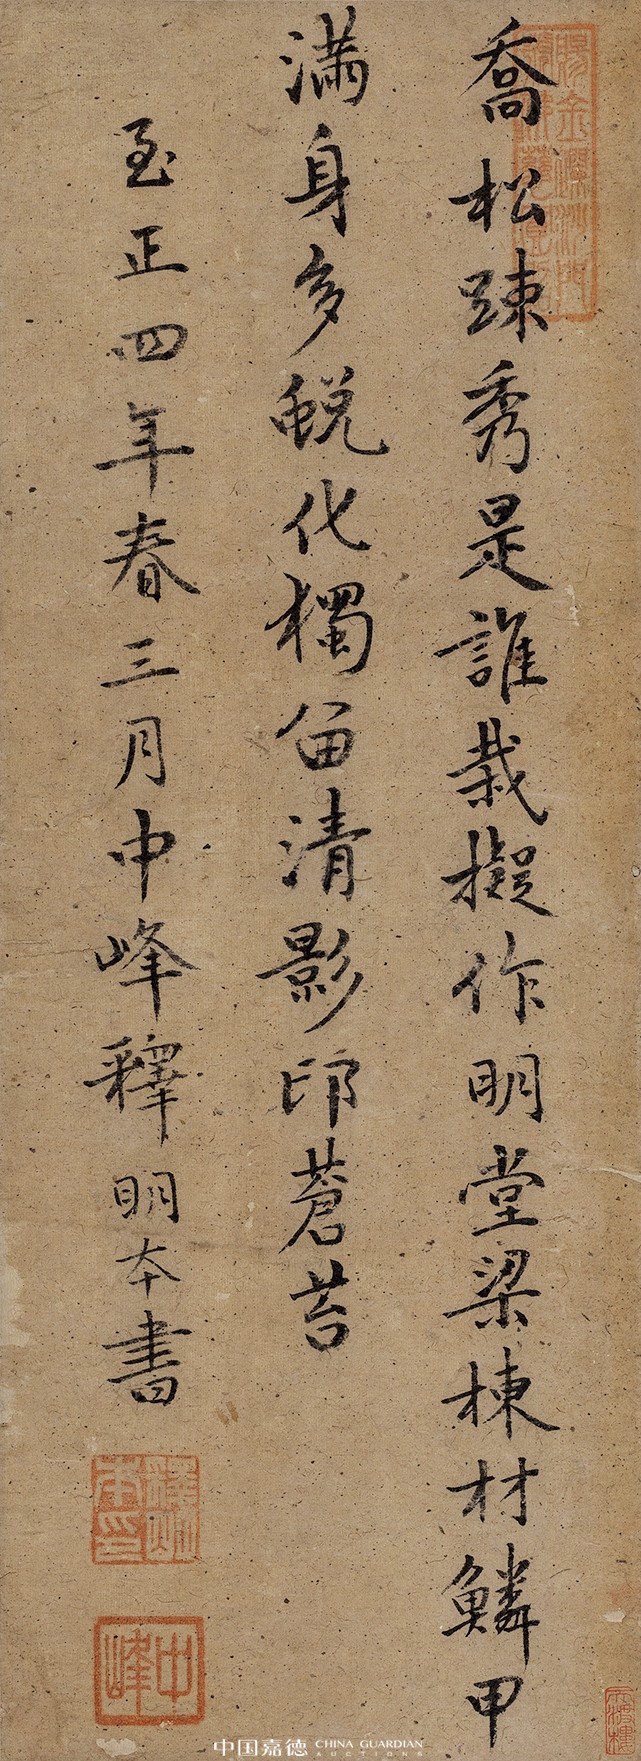 喬松踈秀是誰栽擬作明堂梁棟材鱗甲
滿身多蛻化獨留清影印蒼苔
至正四年春三月中峰釋明本書
釋明本印
中峰
中国嘉德 CHINA GUARDIAN
AUCTIONS